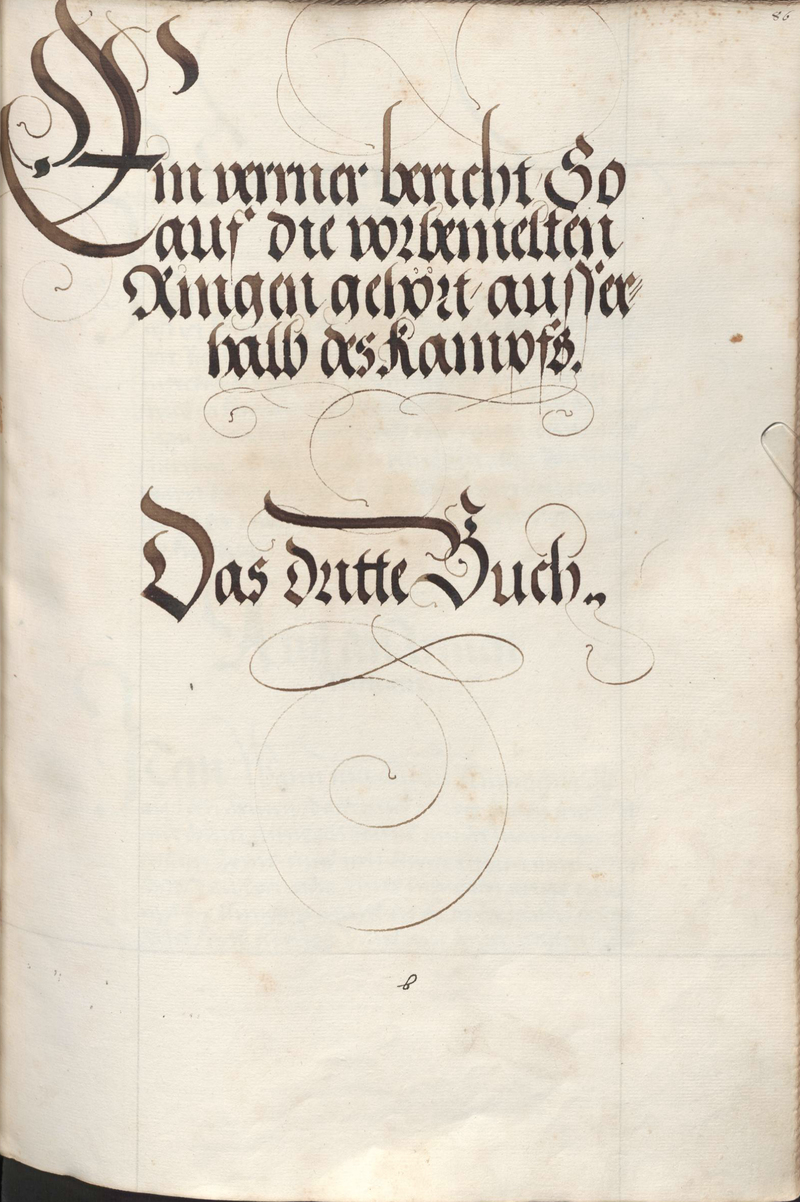 86
Ein verrner bericht So
auf die vorbemelten
Ringen gehört ausser-
halb des Kampfs.
Das dritte Buch.